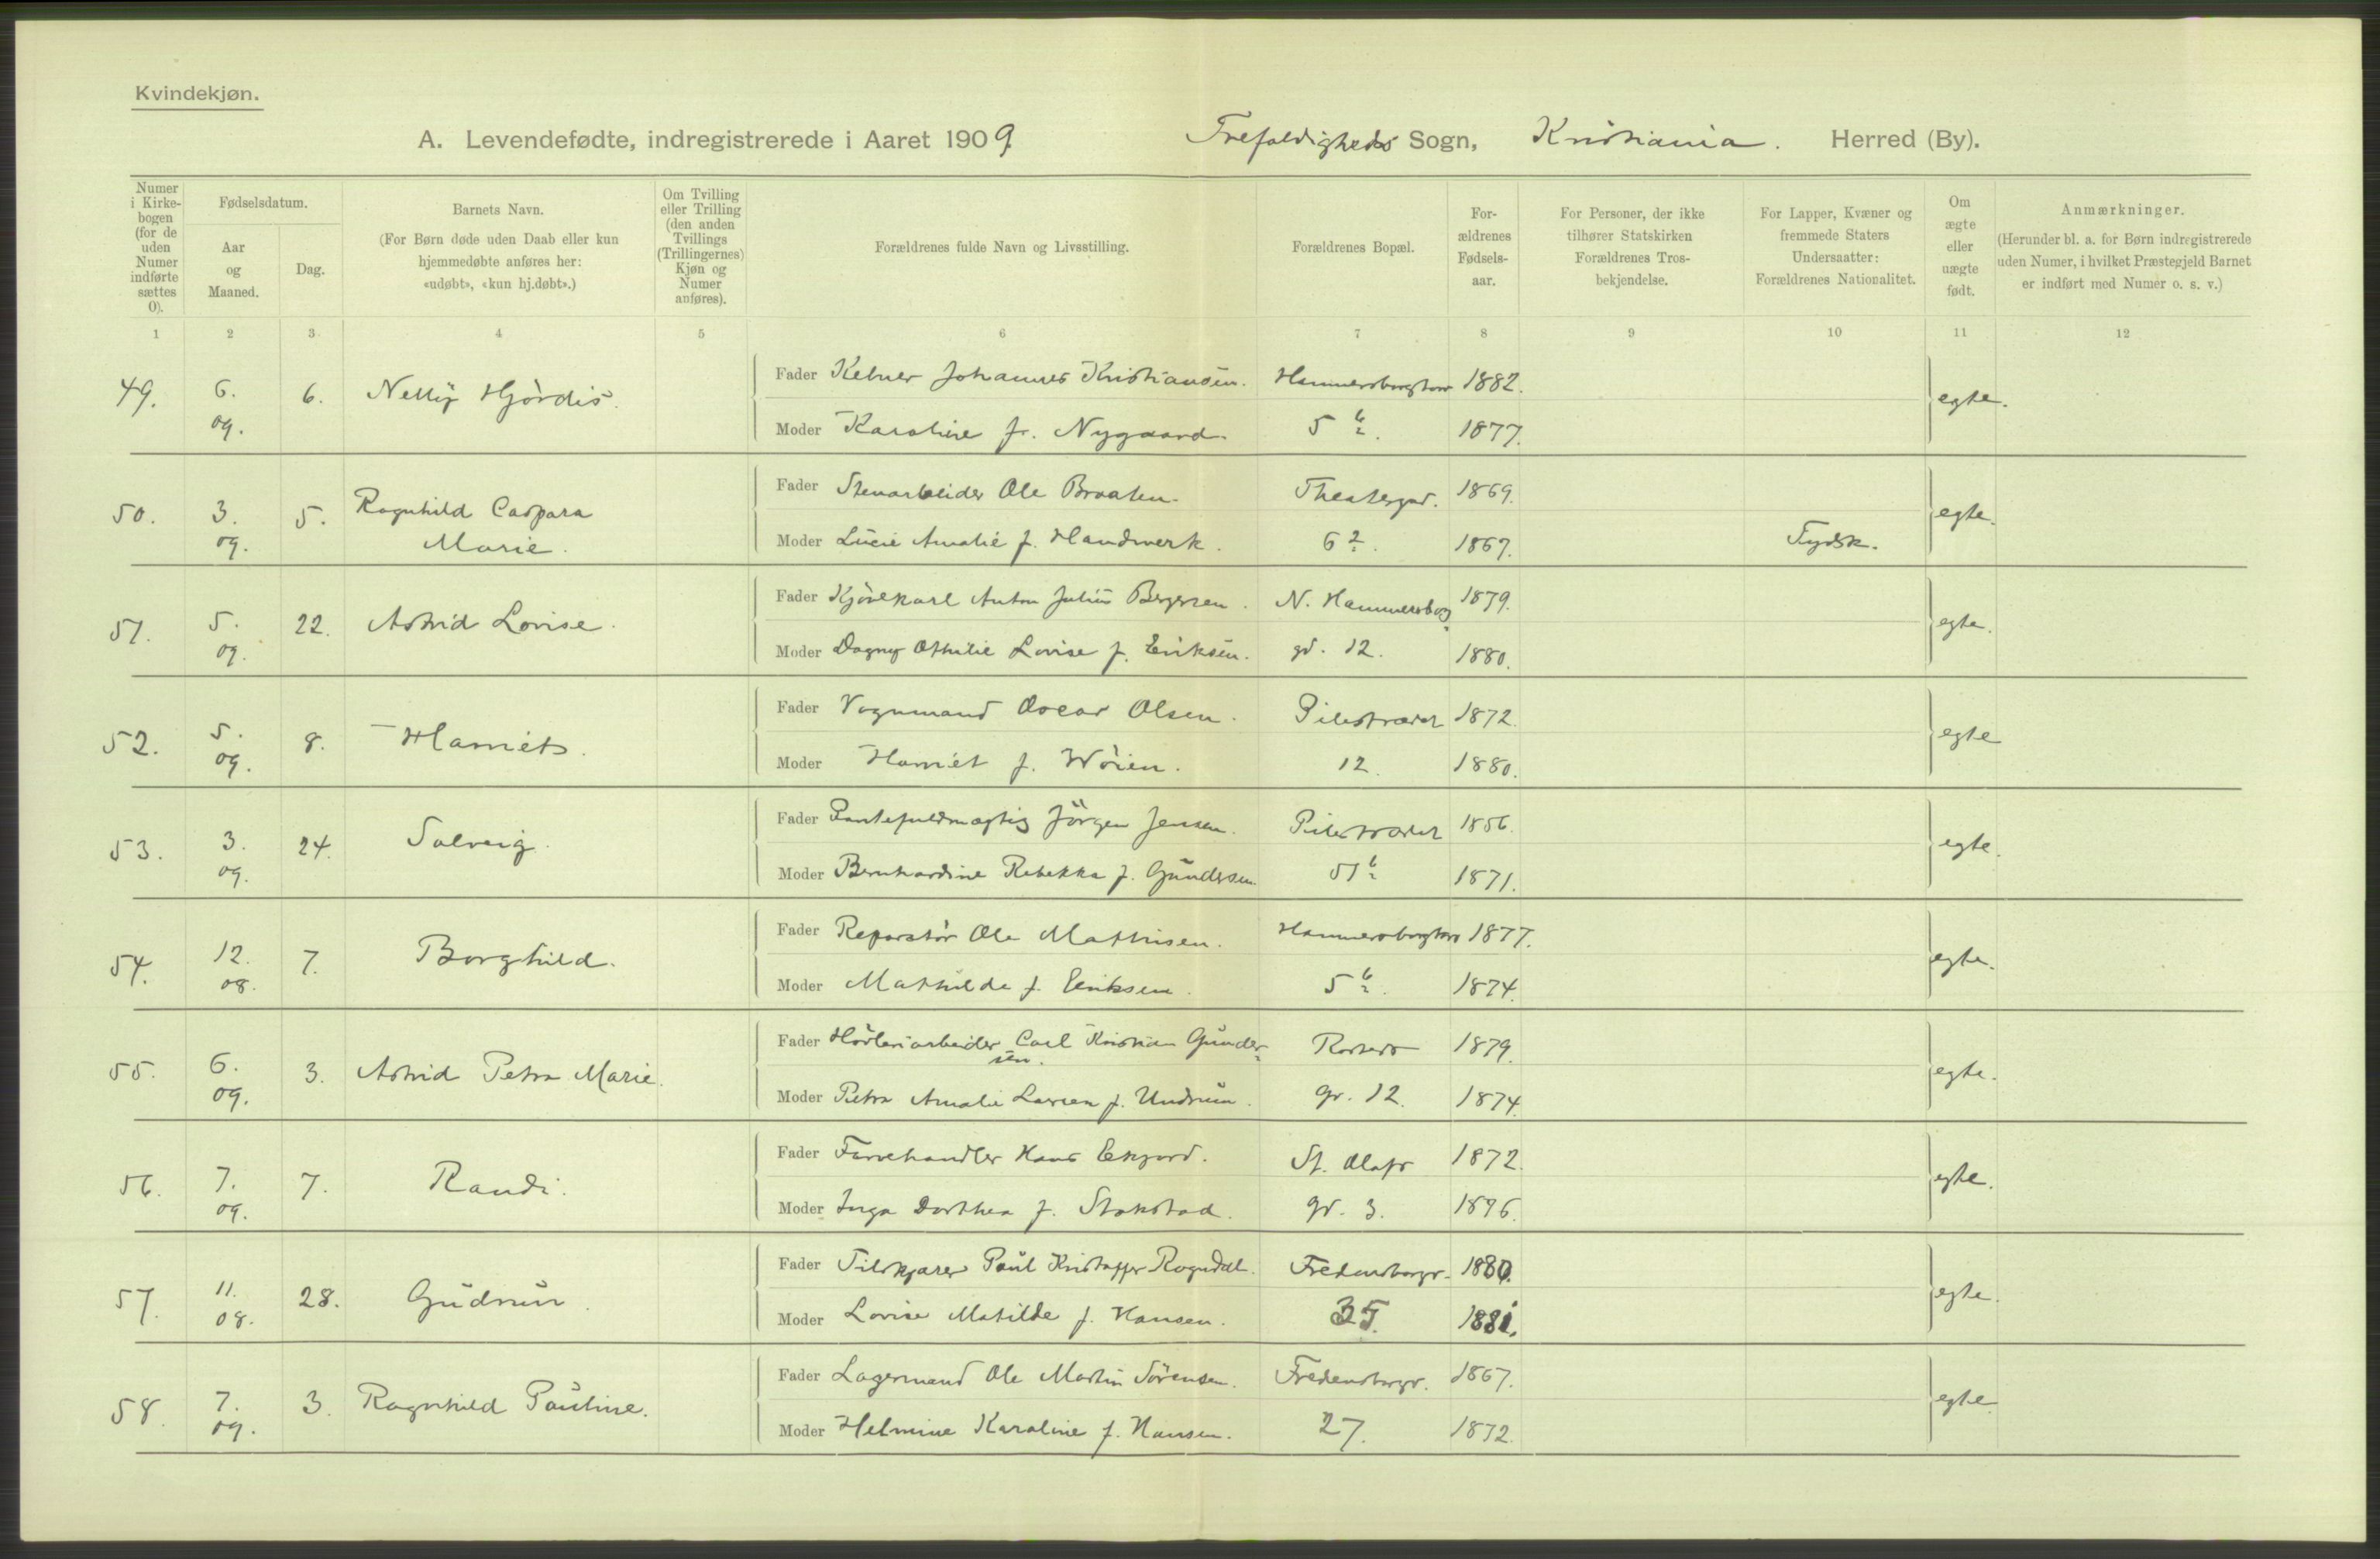 Kvindekjøn.
A. Levendefødte, indregistrerede i Aaret 1909. Trefoldigheds Sogn, Kristiania. Herred (By).
Numer i Kirkebogen (for de uden Numer indførte sættes 0).
Fødselsdatum.
Aar og Maaned.
Dag.
Barnets Navn.
(For Børn døde uden Daab eller kun hjemmedøbte anføres her: «udøbt», «kun hj.døbt».)
Om Tvilling eller Trilling (den anden Tvillings (Trillingernes) Kjøn og Numer anføres).
Forældrenes fulde Navn og Livsstilling.
Forældrenes Bopæl.
For-ældrenes Fødsels-aar.
For Personer, der ikke tilhører Statskirken Forældrenes Tros-bekjendelse.
For Lapper, Kvæner og fremmede Staters Undersaatter: Forældrenes Nationalitet.
Om ægte eller uægte født.
Anmærkninger.
(Herunder bl. a. for Børn indregistrerede uden Numer, i hvilket Præstegjeld Barnet er indført med Numer o. s. v.)
1 2 3 4 5 6 7 8 9 10 11 12
49. 6. 09. 6. Nelly Hjördis.
Fader Kelner Johannes Kristiansen. Hammersborgtorv 1882. egte.
Moder Karoline f. Nygaard. 5 b. 1877.
50. 3. 09. 5. Ragnhild Caspara Marie.
Fader Stenarbeider Ole Braaten. Theatergad. 1869. egte.
Moder Lucie Amalie f. Handwerk. 6 2. 1867. Tydsk.
51. 5. 09. 22. Astrid Lovise.
Fader Kjörekarl Anton Julius Bergersen. N. Hammersborg 1879. egte.
Moder Dagny Othilie Lovise f. Eriksen. gd. 12. 1880.
52. 5. 09. 8. Harriet.
Fader Vognmand Oscar Olsen. Pilestrædet 1872. egte
Moder Harriet f. Wöien. 12. 1880.
53. 3. 09. 24. Solveig.
Fader Pantefuldmægtig Jörgen Jensen. Pilestrædet 1856. egte.
Moder Bernhardine Rebekka f. Gundersen. 51 b 1871.
54. 12. 08. 7. Borghild.
Fader Reparatör Ole Mathisen. Hammersborgtorv 1877. egte.
Moder Mathilde f. Eriksen. 5 b. 1874.
55. 6. 09. 3. Astrid Petra Marie.
Fader Carl Kristian Gundersen. 1879. egte.
Moder Petra Amalie Larsen f. Undrum. gr. 12. 1874.
56. 7. 09. 7. Randi.
Fader Farvehandler Hans Ekjord. St. Olafs 1872. egte.
Moder Inga Dorthea f. Stokstad. gd. 3. 1876.
57. 11. 08. 28. Gudrun.
Fader Tilskjærer Paul Kristoffer Rogndal. Fredensborgv. 1880. egte.
Moder Lovise Matilde f. Hansen. 35. 1881.
58. 7. 09. 3. Ragnhild Pauline.
Fader Lagermand Ole Martin Sörensen. Fredensborgv. 1867. egte
Moder Helmine Karoline f. Hansen. 27. 1872.